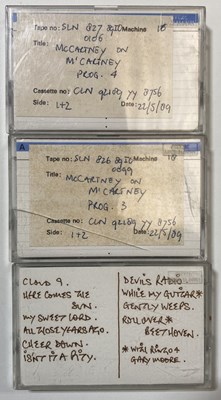 Tape no: SLN 827 8910 Machine 10
0106
Title: McCARTNEY ON
McCARTNEY
PROG. 4
Cassette no: CLN 92189 YY 8756
Side: 1+2 Date: 22/5/89
A
Tape no: SLN 826 8910 Machine 10
0099
Title: McCARTNEY ON
McCARTNEY
PROG. 3
Cassette no: CLN 92189 YY 8756
Side: 1+2 Date: 22/5/89
CLOUD 9.
HERE COMES THE
SUN.
MY SWEET LORD.
ALL THOSE YEARS AGO.
CHEER DOWN.
ISN'T IT A PITY.
DEVILS RADIO
WHILE MY GUITAR*
GENTLY WEEPS.
ROLL OVER*
BEETHOVEN.
* WITH RINGO &
GARY MOORE.